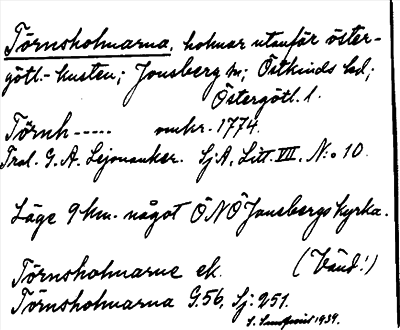 Törnsholmarna, holmar utanför öster-
götl.-kusten; Jonsberg sn; Östkinds hd;
Östergötl. l.
Törnh----- omkr. 1774.
Tral. G. A. Lejonanker. LjA, Litt. VII. N:o 10.
Läge 9 km. något ÖNÖ Jonsbergs kyrka.
Törnsholmarne ek. (Vänd!)
Törnsholmarna G.56, Sj: 251.
S. 1939.